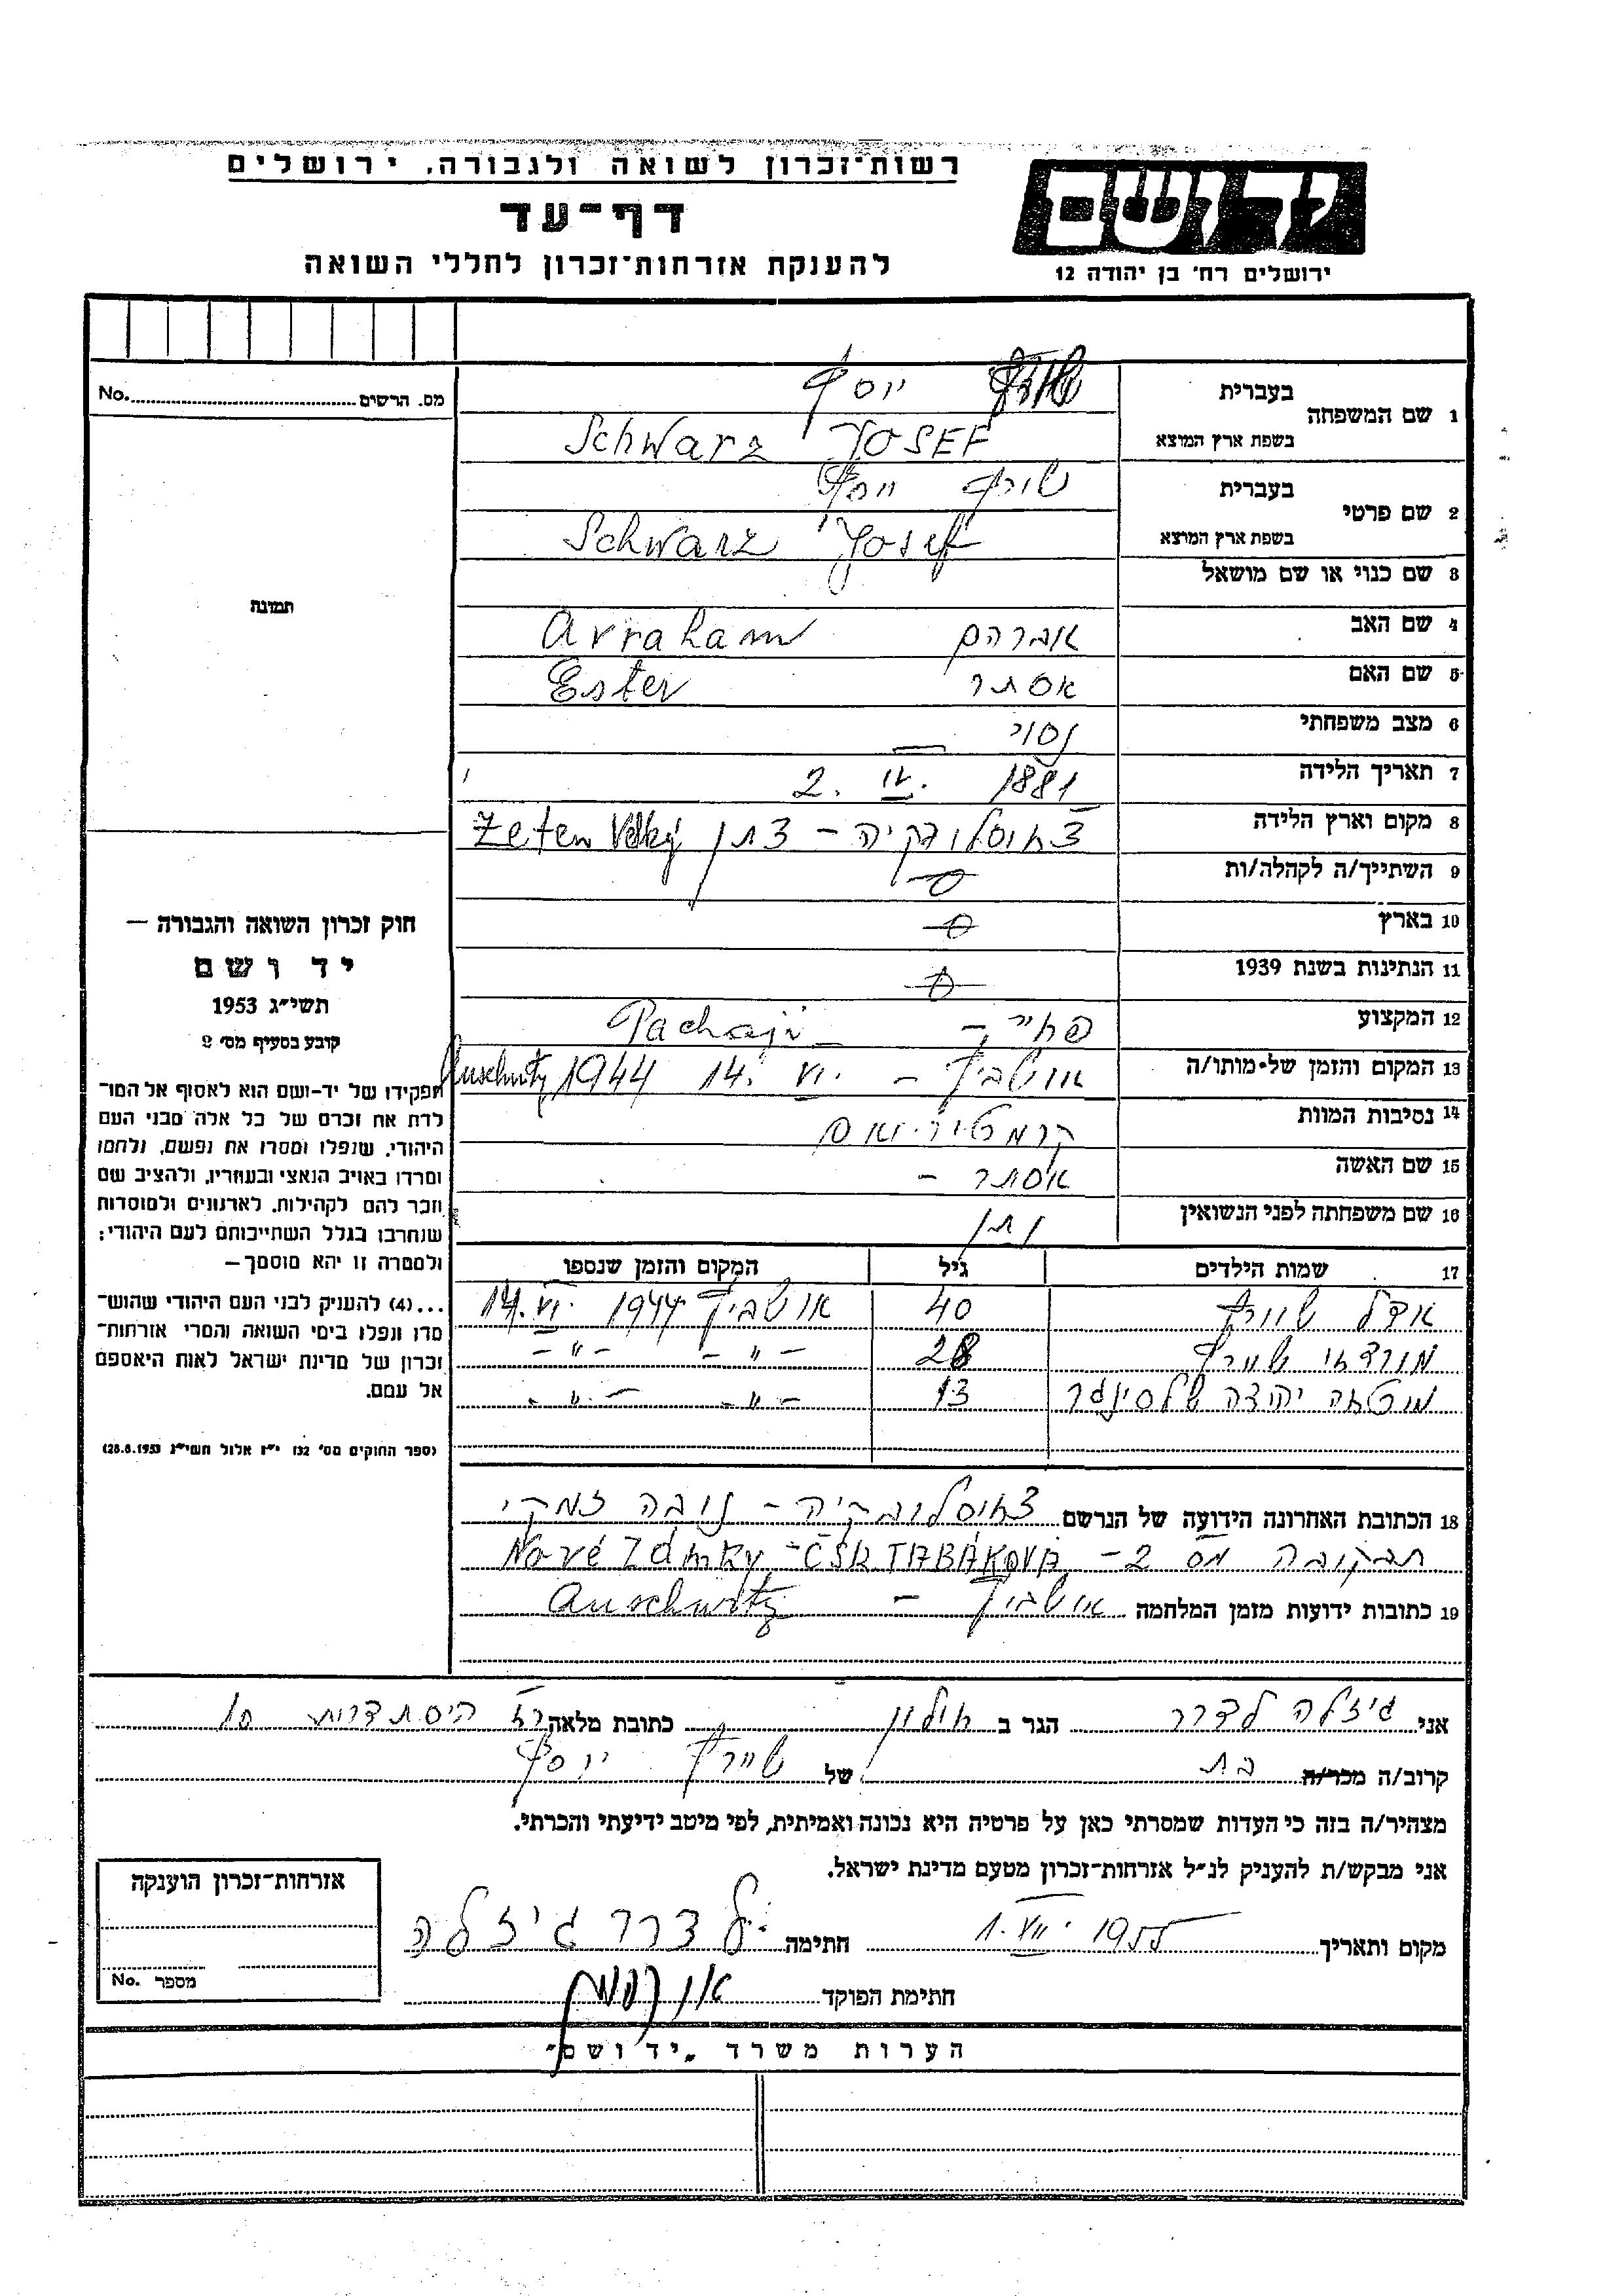 רשות־זכרון לשואה ולגבורה, ירושלים
דף־עד
להענקת אזרחות־זכרון לחללי השואה
יד ושם
ירושלים רח' בן יהודה 12
מס. הרשים No.
תמונה
1 שם המשפחה
בעברית שוורץ יוסף
בשפת ארץ המוצא Schwarz JOSEF
2 שם פרטי
בעברית שורץ יוסף
בשפת ארץ המוצא Schwarz Josef
3 שם כנוי או שם מושאל
4 שם האב אברהם Avraham
5 שם האם אסתר Ester
6 מצב משפחתי נסוי —
7 תאריך הלידה 2. IV. 1881
8 מקום וארץ הלידה Zeten Velký
9 השתייך/ה לקהלה/ות
10 בארץ
11 הנתינות בשנת 1939
12 המקצוע פחיי – Pachaji
13 המקום והזמן של-מותו/ה אושביץ – 14. VI. 1944 Auschwitz
14 נסיבות המוות
15 שם האשה אסתר –
16 שם משפחתה לפני הנשואין
17 שמות הילדים גיל המקום והזמן שנספו
שוורץ 40 אושביץ 1944 14. VI.
מורדכי שוורץ 28 – " – – " –
יהודה שלסינגר 13 – " – – " –
18 הכתובת האחרונה הידועה של הנרשם צ'וסלובקיה – נובה זמקי
תבקובה מס 2 – Nové Zámky – ČSR TABÁKOVA
19 כתובות ידועות מזמן המלחמה אושביץ – Auschwitz
חוק זכרון השואה והגבורה –
יד ושם
תשי״ג 1953
קובע בסעיף מס' 2
תפקידו של יד-ושם הוא לאסוף אל המו־
לדת את זכרם של כל אלה מבני העם
היהודי, שנפלו ומסרו את נפשם, נלחמו
ומרדו באויב הנאצי ובעוזריו, ולהציב שם
וזכר להם לקהילות, לארגונים ולמוסדות
שנחרבו בגלל השתייכותם לעם היהודי;
ולמטרה זו יהא מוסמך –
...(4) להעניק לבני העם היהודי שהוש־
מדו ונפלו בימי השואה והמרי אזרחות־
זכרון של מדינת ישראל לאות היאספם
אל עמם.
(ספר החוקים מס' 132 י״ז אלול תשי״ג 28.8.1953)
אני גיזלה לדרר הגר ב חולון כתובת מלאה רח הסתדרות 10
קרוב/ה מכר/ה בת של שוורץ יוסף
מצהיר/ה בזה כי העדות שמסרתי כאן על פרטיה היא נכונה ואמיתית, לפי מיטב ידיעתי והכרתי.
אני מבקש/ת להעניק לנ״ל אזרחות-זכרון מטעם מדינת ישראל.
מקום ותאריך 1. VII. 1955 חתימה לדרר גיזלה
חתימת הפוקד
אזרחות-זכרון הוענקה
מספר No.
הערות משרד „יד ושם"